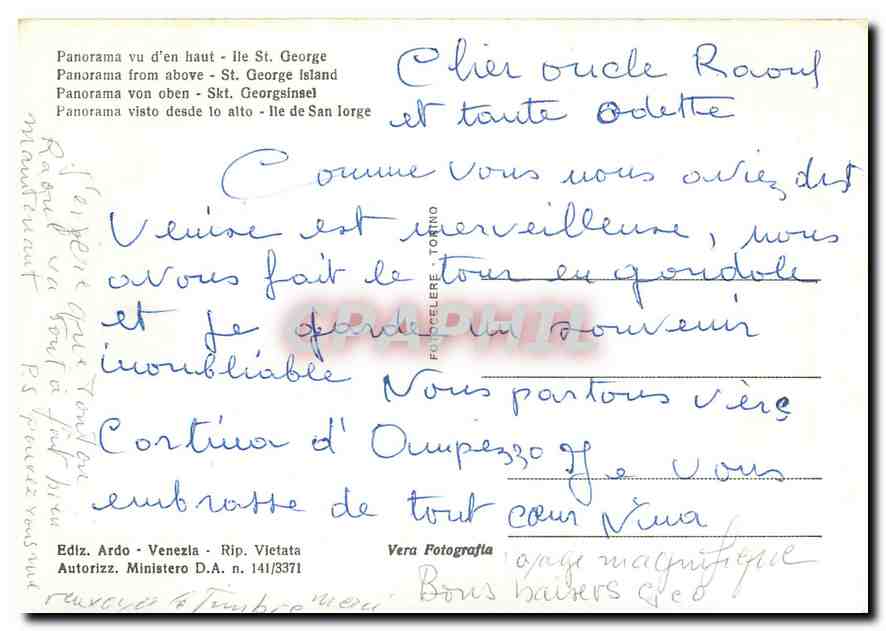 Panorama vu d'en haut - Ile St. George
Panorama from above - St. George Island
Panorama von oben - Skt. Georgsinsel
Panorama visto desde lo alto - Ile de San Iorge
Cher oncle Raoul
et tante Odette
Comme vous nous aviez dit
Venise est merveilleuse, nous
avons fait le tour en gondole
et je garde un souvenir
inoubliable Nous partons vers
Cortina d'Ampezzo Je vous
embrasse de tout cœur Nina
FOTOCELERE - TORINO
GRAPHIL
Ediz. Ardo - Venezia - Rip. Vietata
Autorizz. Ministero D.A. n. 141/3371
Vera Fotografia
voyage magnifique
Bons baisers Geo
J'espère que Tonton
Raoul va tout à fait bien
maintenant PS pouvez vous me
renvoyer le Timbre merci